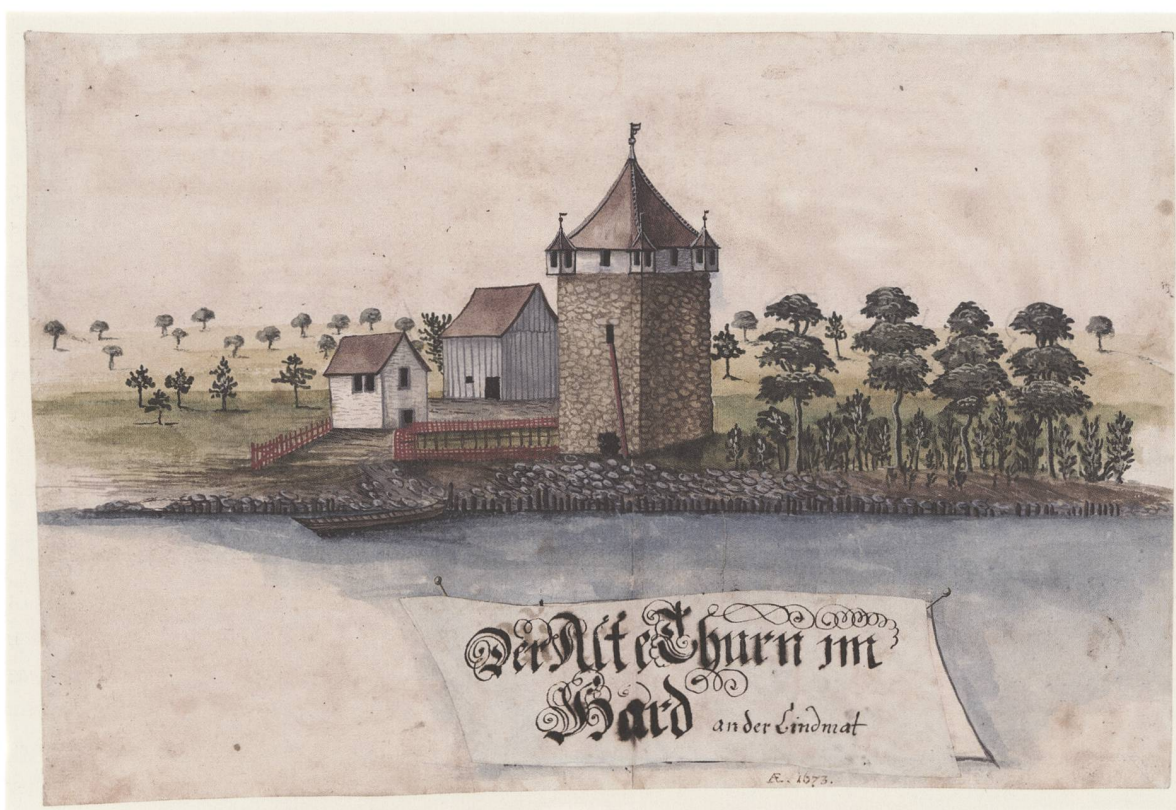 Der Alte Thurn im
Hard an der Lindmat
Æ. 1673.